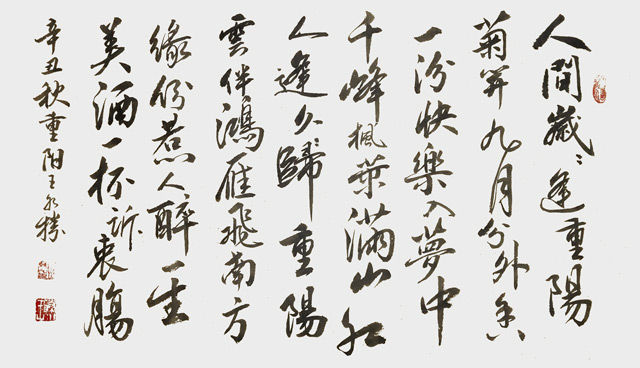 人間歲〻逢重陽
菊九月分外香
一份快樂入夢中
千峰楓葉滿山紅
人逢久〻歸重陽
雲伴鴻雁飛南方
緣份惹人醉一生
美酒一杯訴衷腸
辛丑秋重阳王永勝